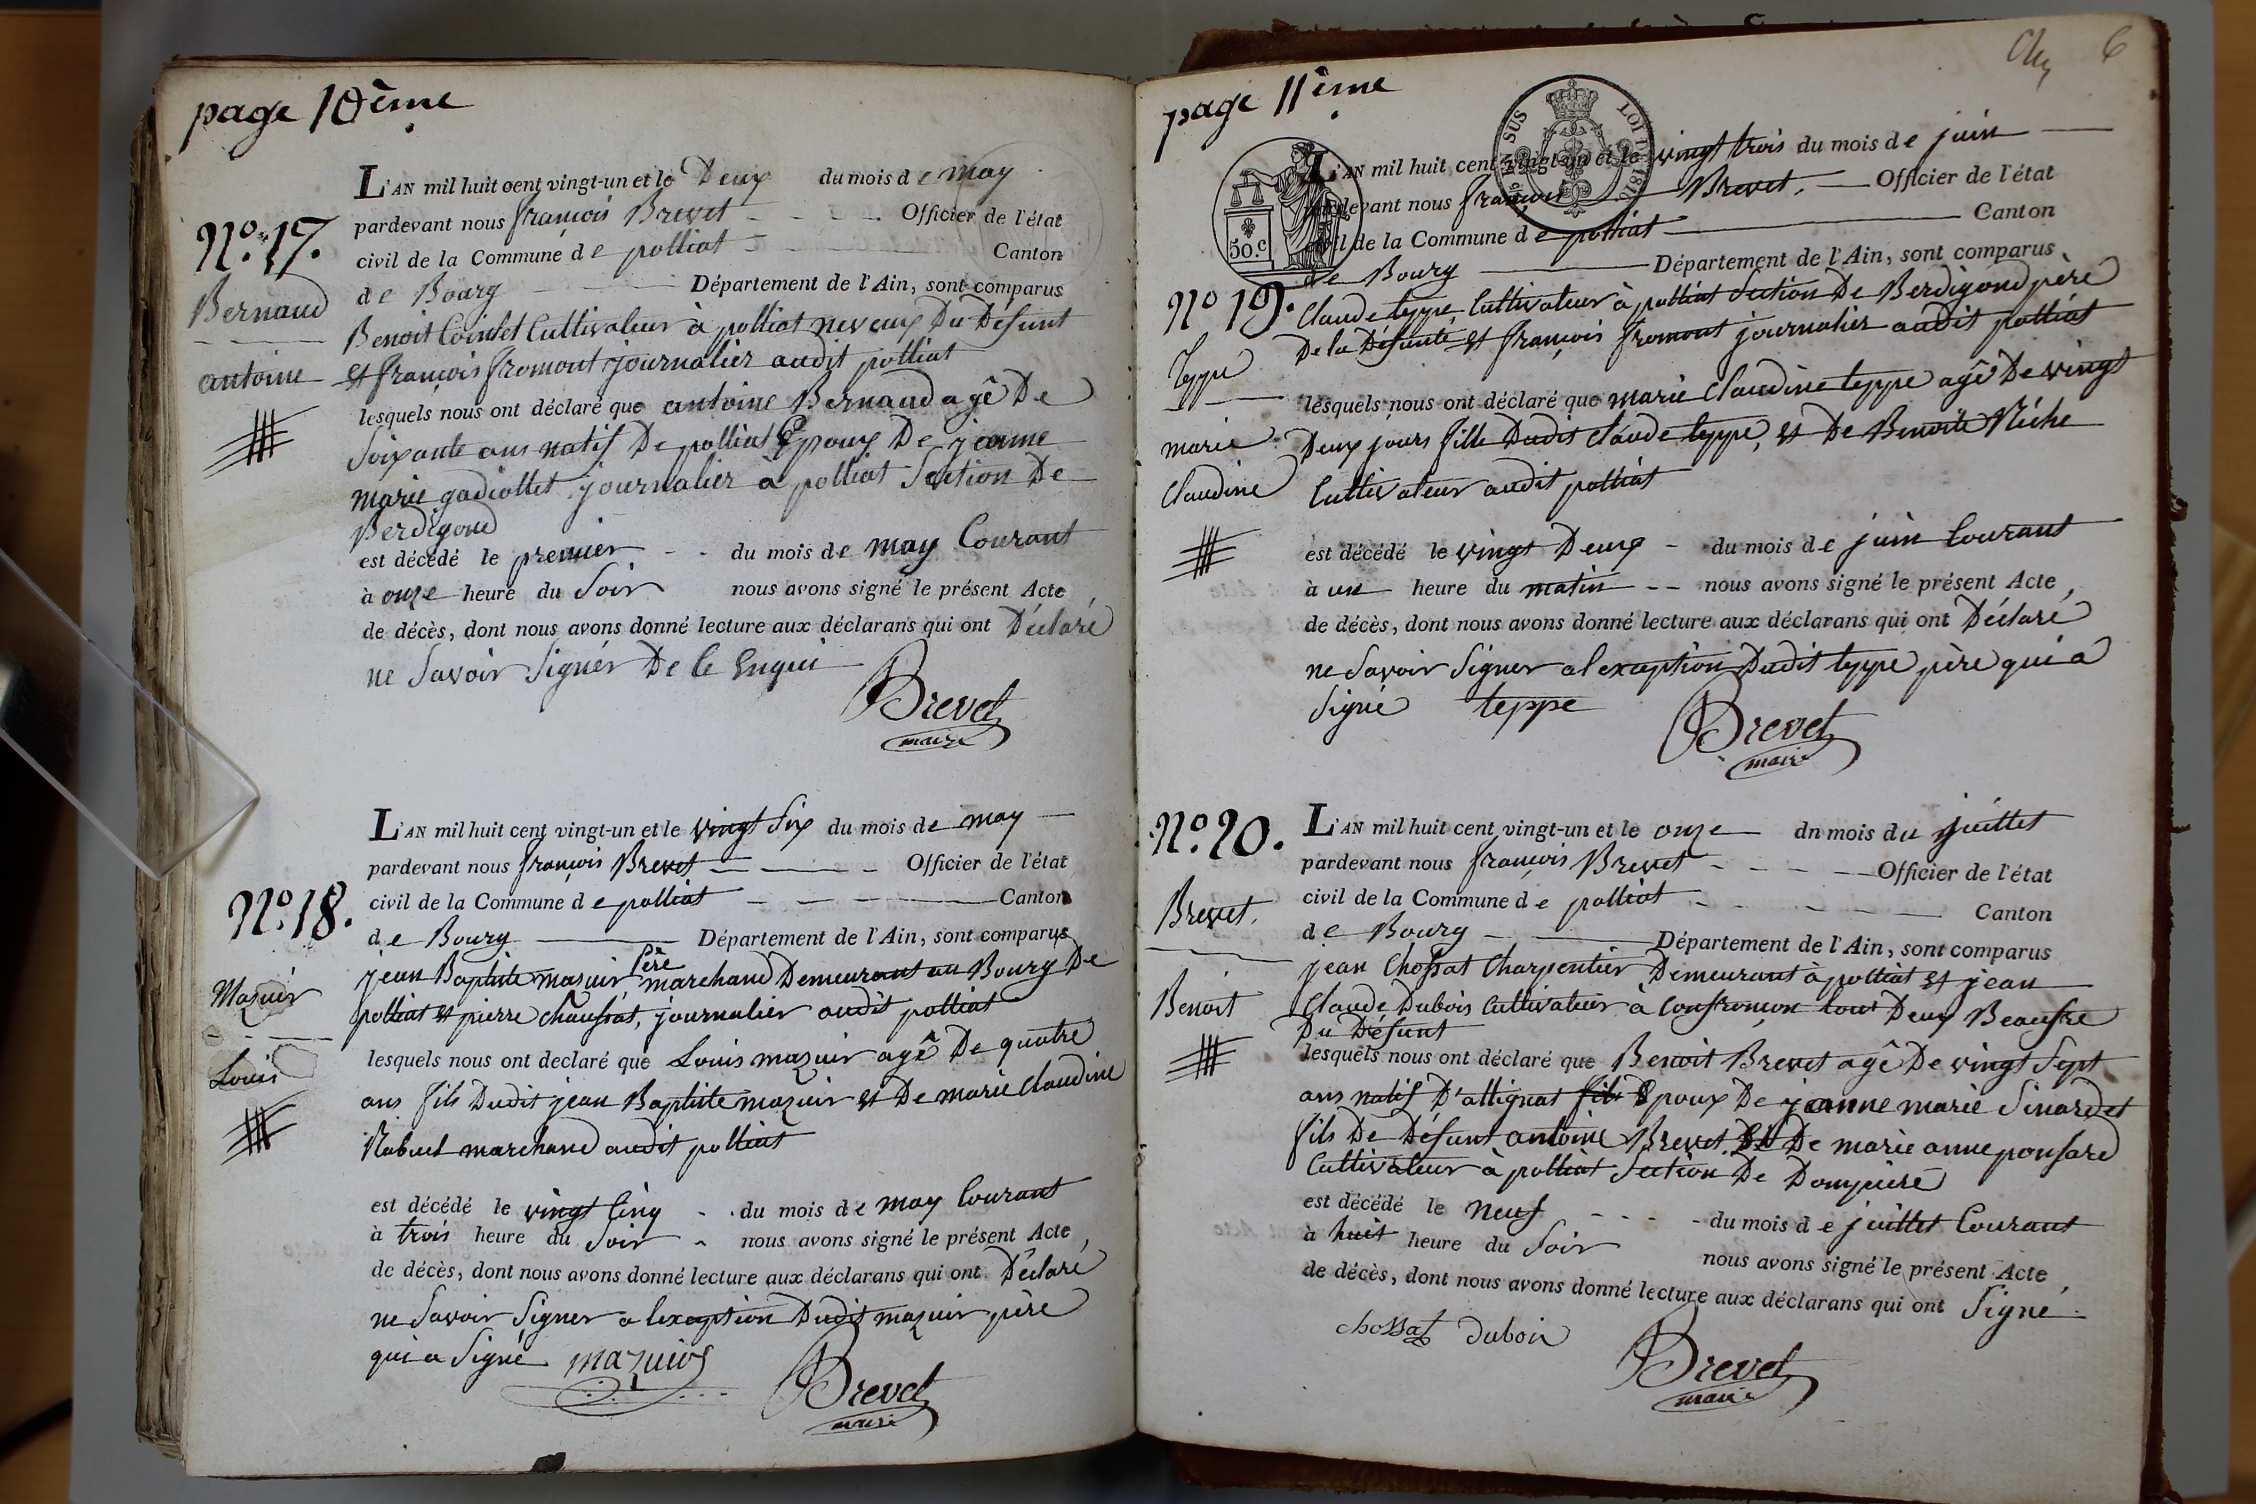 page 10ème
L'AN mil huit cent vingt-un et le Deux du mois de may
pardevant nous françois Brevet Officier de l'état
civil de la Commune de polliat Canton
de Bourg Département de l'Ain, sont comparus
Nº 17.
Bernaud
antoine
Benoit Cointet Cultivateur à polliat neveux Du Défunt
et françois fromont journalier audit polliat
lesquels nous ont déclaré que antoine Bernaud agê De
Soixante ans natif De polliat Epoux De jeanne
marie gadiollet journalier à polliat Section De
Berdigond
est décédé le premier du mois de may Courant
à onze heure du Soir nous avons signé le présent Acte
de décès, dont nous avons donné lecture aux déclarans qui ont Déclaré
ne Savoir Signér De Ce Enqui
Brevet
maire
L'AN mil huit cent vingt-un et le vingt Six du mois de may
pardevant nous françois Brevet Officier de l'état
civil de la Commune de polliat Canton
de Bourg Département de l'Ain, sont comparus
Nº 18.
Mazuir
Louis
jean Baptiste mazuir Père marchand Demeurant au Bourg De
polliat et pierre chaussat, journalier audit polliat
lesquels nous ont declaré que Louis mazuir agê De quatre
ans fils Dudit jean Baptiste mazuir et De marie Claudine
Nabuet marchand audit polliat
est décédé le vingt Cinq du mois de may Courant
à trois heure du Soir nous avons signé le présent Acte,
de décès, dont nous avons donné lecture aux déclarans qui ont Déclaré
ne Savoir Signer a lexception Dudit mazuir père
qui a Signé mazuir
Brevet
maire
page 11ème
6
TIMBRE
SUS
LOI DE 1816
50.c
L'AN mil huit cent vingt-un et le vingt trois du mois de juin
pardevant nous françois Brevet. Officier de l'état
civil de la Commune de polliat Canton
de Bourg Département de l'Ain, sont comparus
Nº 19.
Teppe
marie
Claudine
Claude teppe Cultivateur à polliat Section De Berdigond père
De la Défunte et françois fromont journalier audit polliat
lesquels nous ont déclaré que marie Claudine teppe agê De vingt
Deux jours fille Dudit Claude teppe, et De Benoite Niche
Cultivateur audit polliat
est décédé le vingt Deux du mois de juin Courant
à un heure du matin nous avons signé le présent Acte,
de décès, dont nous avons donné lecture aux déclarans qui ont Déclaré
ne Savoir Signer a lexception Dudit teppe père qui a
Signé teppe
Brevet
maire
Nº 20.
Brevet.
Benoit
L'AN mil huit cent vingt-un et le onze dn mois du juillet
pardevant nous françois Brevet Officier de l'état
civil de la Commune de polliat Canton
de Bourg Département de l'Ain, sont comparus
jean Chossat Charpentier Demeurant à polliat et jean
Claude Dubois Cultivateur à Confrançon tout Deux Beaufre
Du Défunt
lesquels nous ont déclaré que Benoit Brevet agê De vingt Sept
ans natif D'attignat fils Epoux De jeanne marie Sinardet
fils De Défunt antoine Brevet Et De marie anne ponsard
Cultivateur à polliat Section De Dompière
est décédé le neuf du mois de juillet Courant
à huit heure du Soir nous avons signé le présent Acte,
de décès, dont nous avons donné lecture aux déclarans qui ont Signé
chossat dubois
Brevet
maire